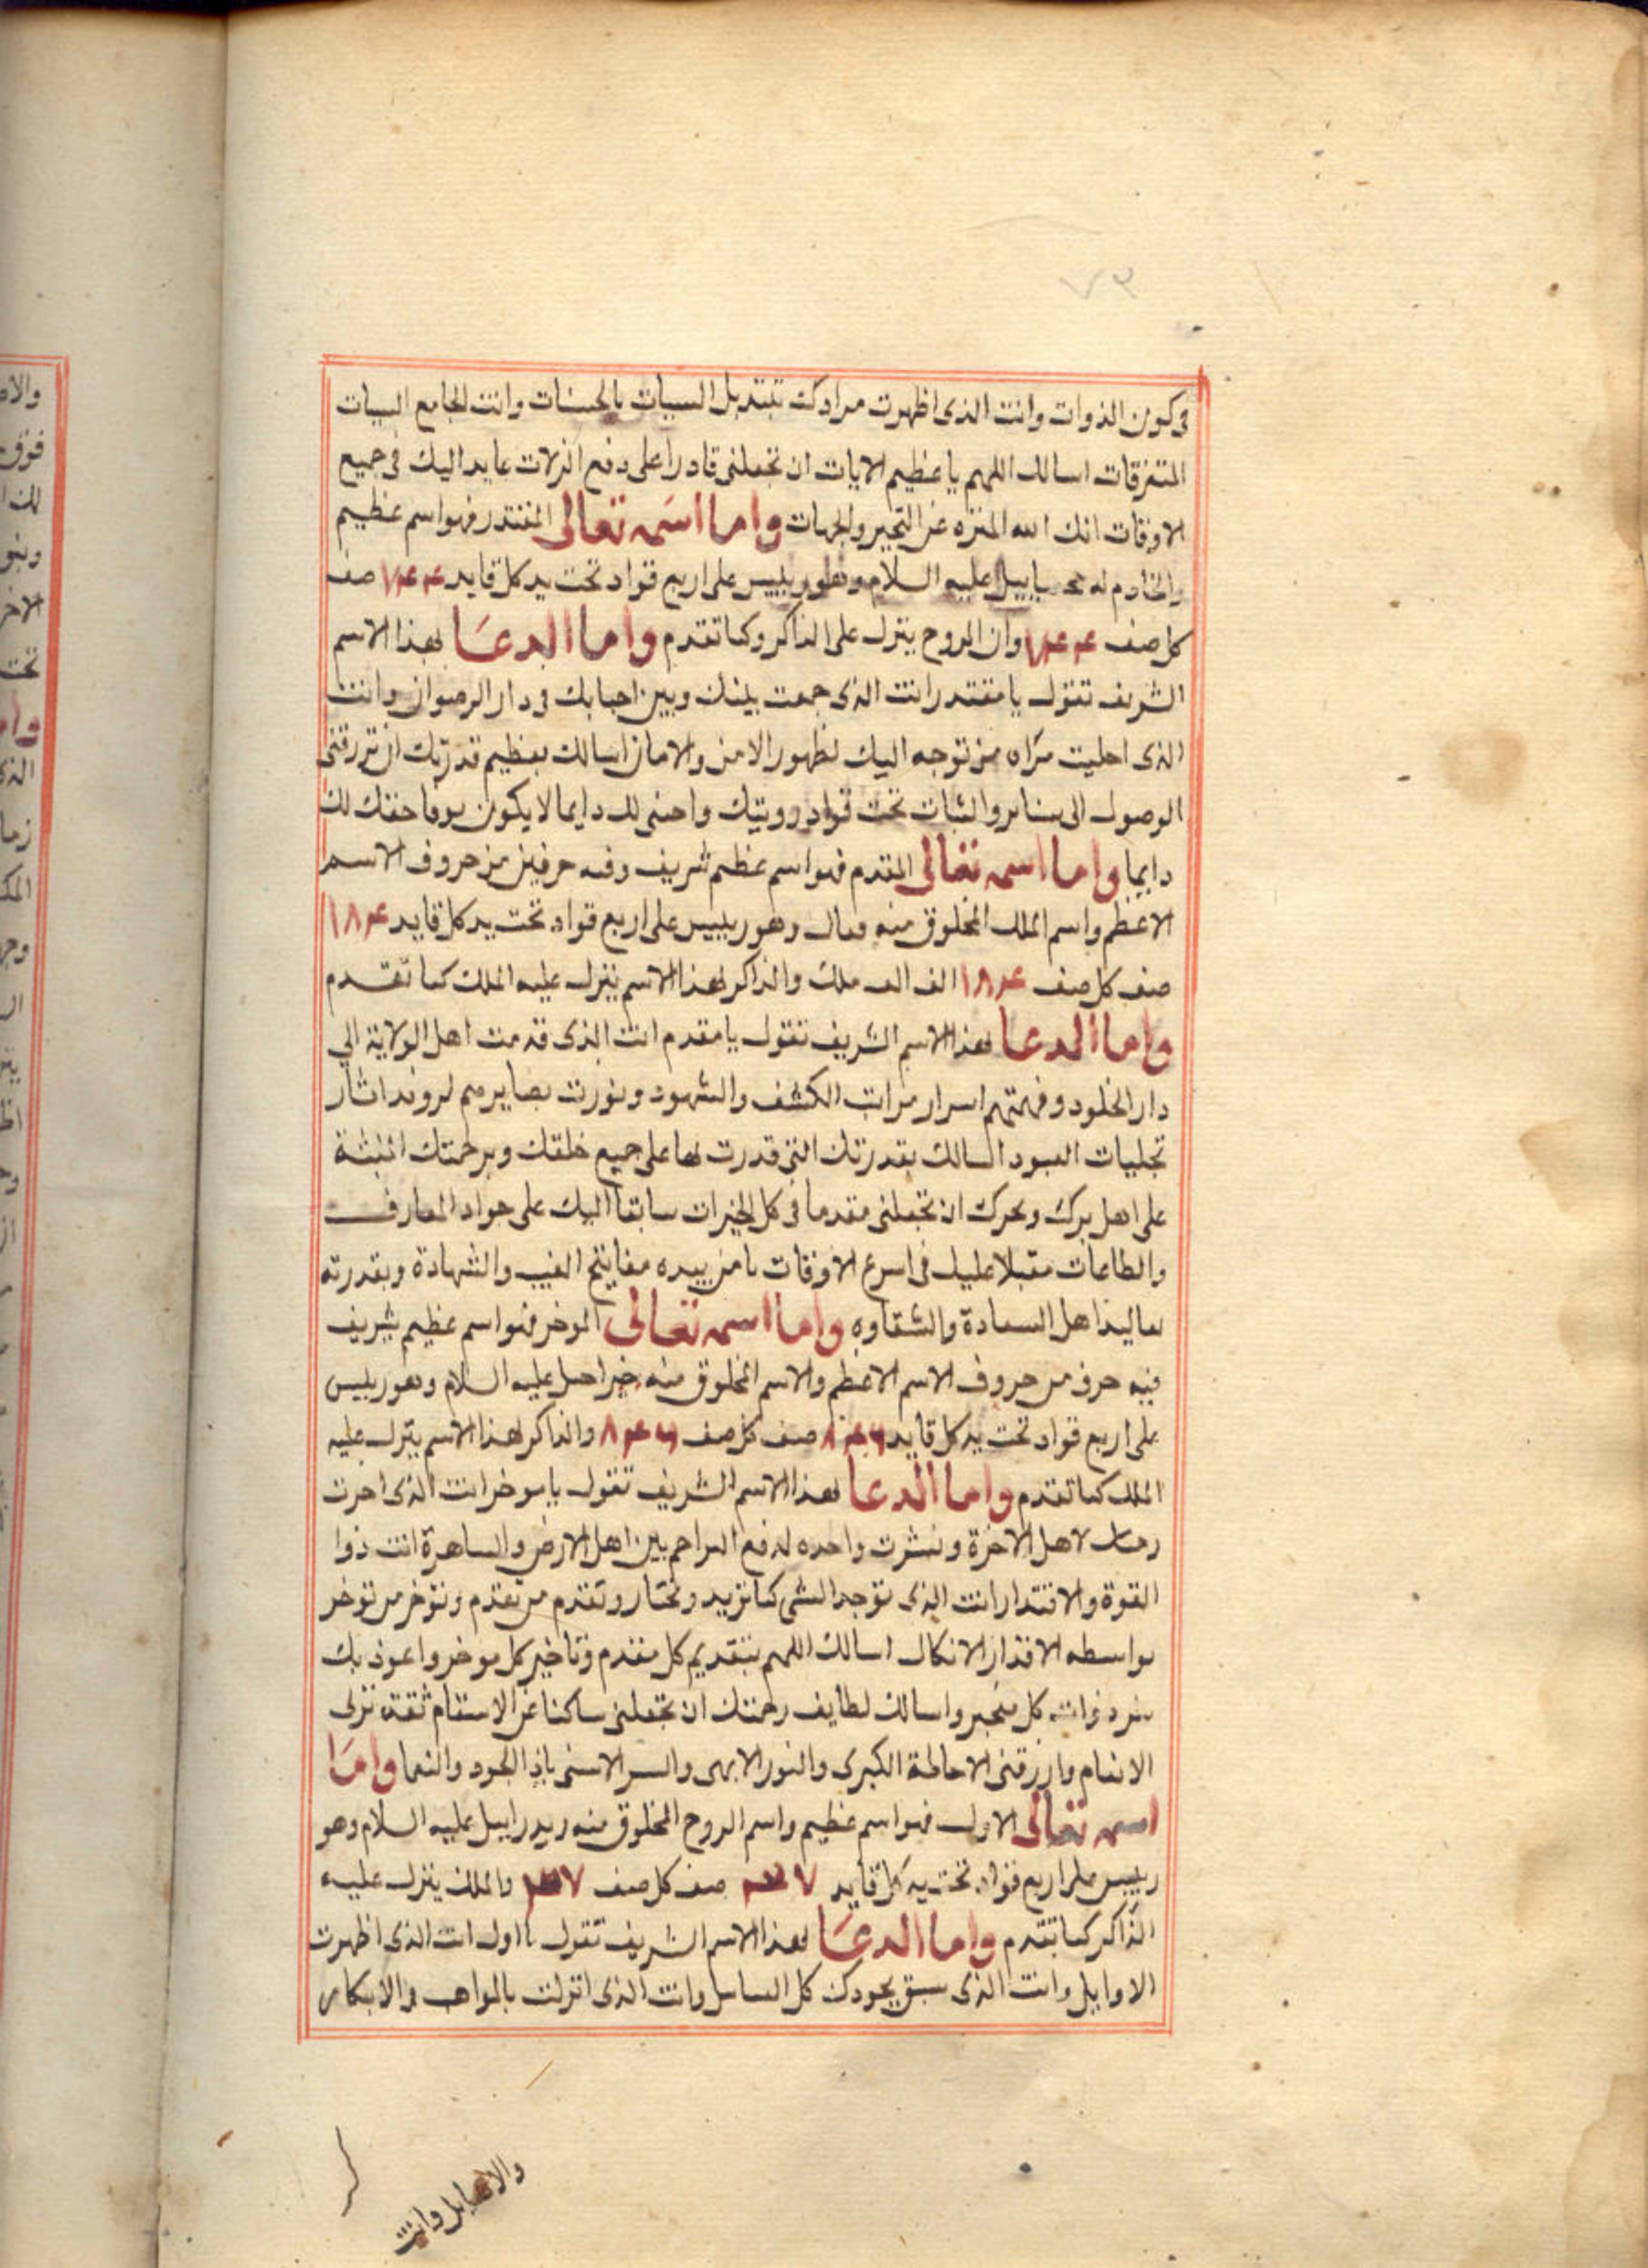 ٧٣
في كون الذوات وانت الذى اظهرت مرادك بتبديل السيات بالحسنات وانت الجامع السيات
المتفرقات اسالك اللهم يا عظيم الايات ان تجعلنى قادرا على دفع الزلات عايد اليك فى جميع
الاوقات انك الله المنزه عن التحير والجهات واما اسمه تعالى المقتدر فهو اسم عظيم
والخادم له عليه السلام وهو رييس على اربع قواد تحت يد كل قايد ٧٤٤ صف
كل صف ٧٤٤ وان الروح ينزل على الذاكر وكما تقدم واما الدعا لهذا الاسم
الشريف تقول يا مقتدر انت الذى جمعت بينك وبين احبابك فى دار الرضوان وانت
الذى اجليت مرآه من توجه اليك لظهور الامن والامان اسالك بعظيم قدرتك ان ترزقنى
الوصول الى والثبات تحت دايما لا يكون لك
دايما واما اسمه تعالى المقدم فهو اسم عظيم شريف وفيه حرفين من حروف الاسم
الاعظم واسم الملك المخلوق منه وهو رييس على اربع قواد تحت يد كل قايد ١٨٤
صف كل صف ١٨٤ الف الف ملك والذاكر لهذا الاسم ينزل عليه الملك كما تقدم
واما الدعا لهذا الاسم الشريف تقول يا مقدم انت الذى قدمت اهل الولاية الى
دار الخلود وفهمتهم اسرار مراتب الكشف والشهود ونورت بصايرهم اثار
تجليات اسالك بقدرتك التى قدرت بها على جميع خلقك وبرحمتك المنبثة
على اهل برك وبحرك ان تجعلنى مقدما فى كل الخيرات سابقا اليك على جواد المعارف
والطاعات مقبلا عليك فى اسرع الاوقات يا من بيده مفاتيح الغيب والشهادة وبقدرته
اهل السعادة والشقاوه واما اسمه تعالى الموخر فهو اسم عظيم شريف
فيه حرف من حروف الاسم الاعظم والاسم المخلوق منه عليه السلام وهو رييس
على اربع قواد تحت يد كل قايد ٨٤٦ صف كل صف ٨٤٦ والذاكر لهذا الاسم ينزل عليه
الملك كما تقدم واما الدعا لهذا الاسم الشريف تقول يا موخر انت الذى اخرت
لاهل الاخرة ونشرت واحده لدفع بين اهل الارض والساهرة انت ذوا
القوة والاقتدار انت الذى توجد الشى كما تريد وتختار وتقدم من تقدم وتوخر من توخر
بواسطه اسالك اللهم بتقديم كل مقدم وتاخير كل موخر واعوذ بك
كل متجبر واسالك لطايف رحمتك ان تجعلنى ساكنا عن الانتقام
الانعام وارزقنى الاحاطة الكبرى والنور الابهى والسر الاسنى ياذا الجود والنعما واما
اسمه تعالى الاول فهو اسم عظيم واسم الروح المخلوق منه عليه السلام وهو
رييس على اربع قواد تحت يد كل قايد صف كل صف والملك ينزل عليه
الذاكر كما تقدم واما الدعا لهذا الاسم الشريف تقول يا اول انت الذى اظهرت
الاوايل وانت الذى سبق بجودك كل وانت الذى انزلت بالمواهب والابكار
وانت